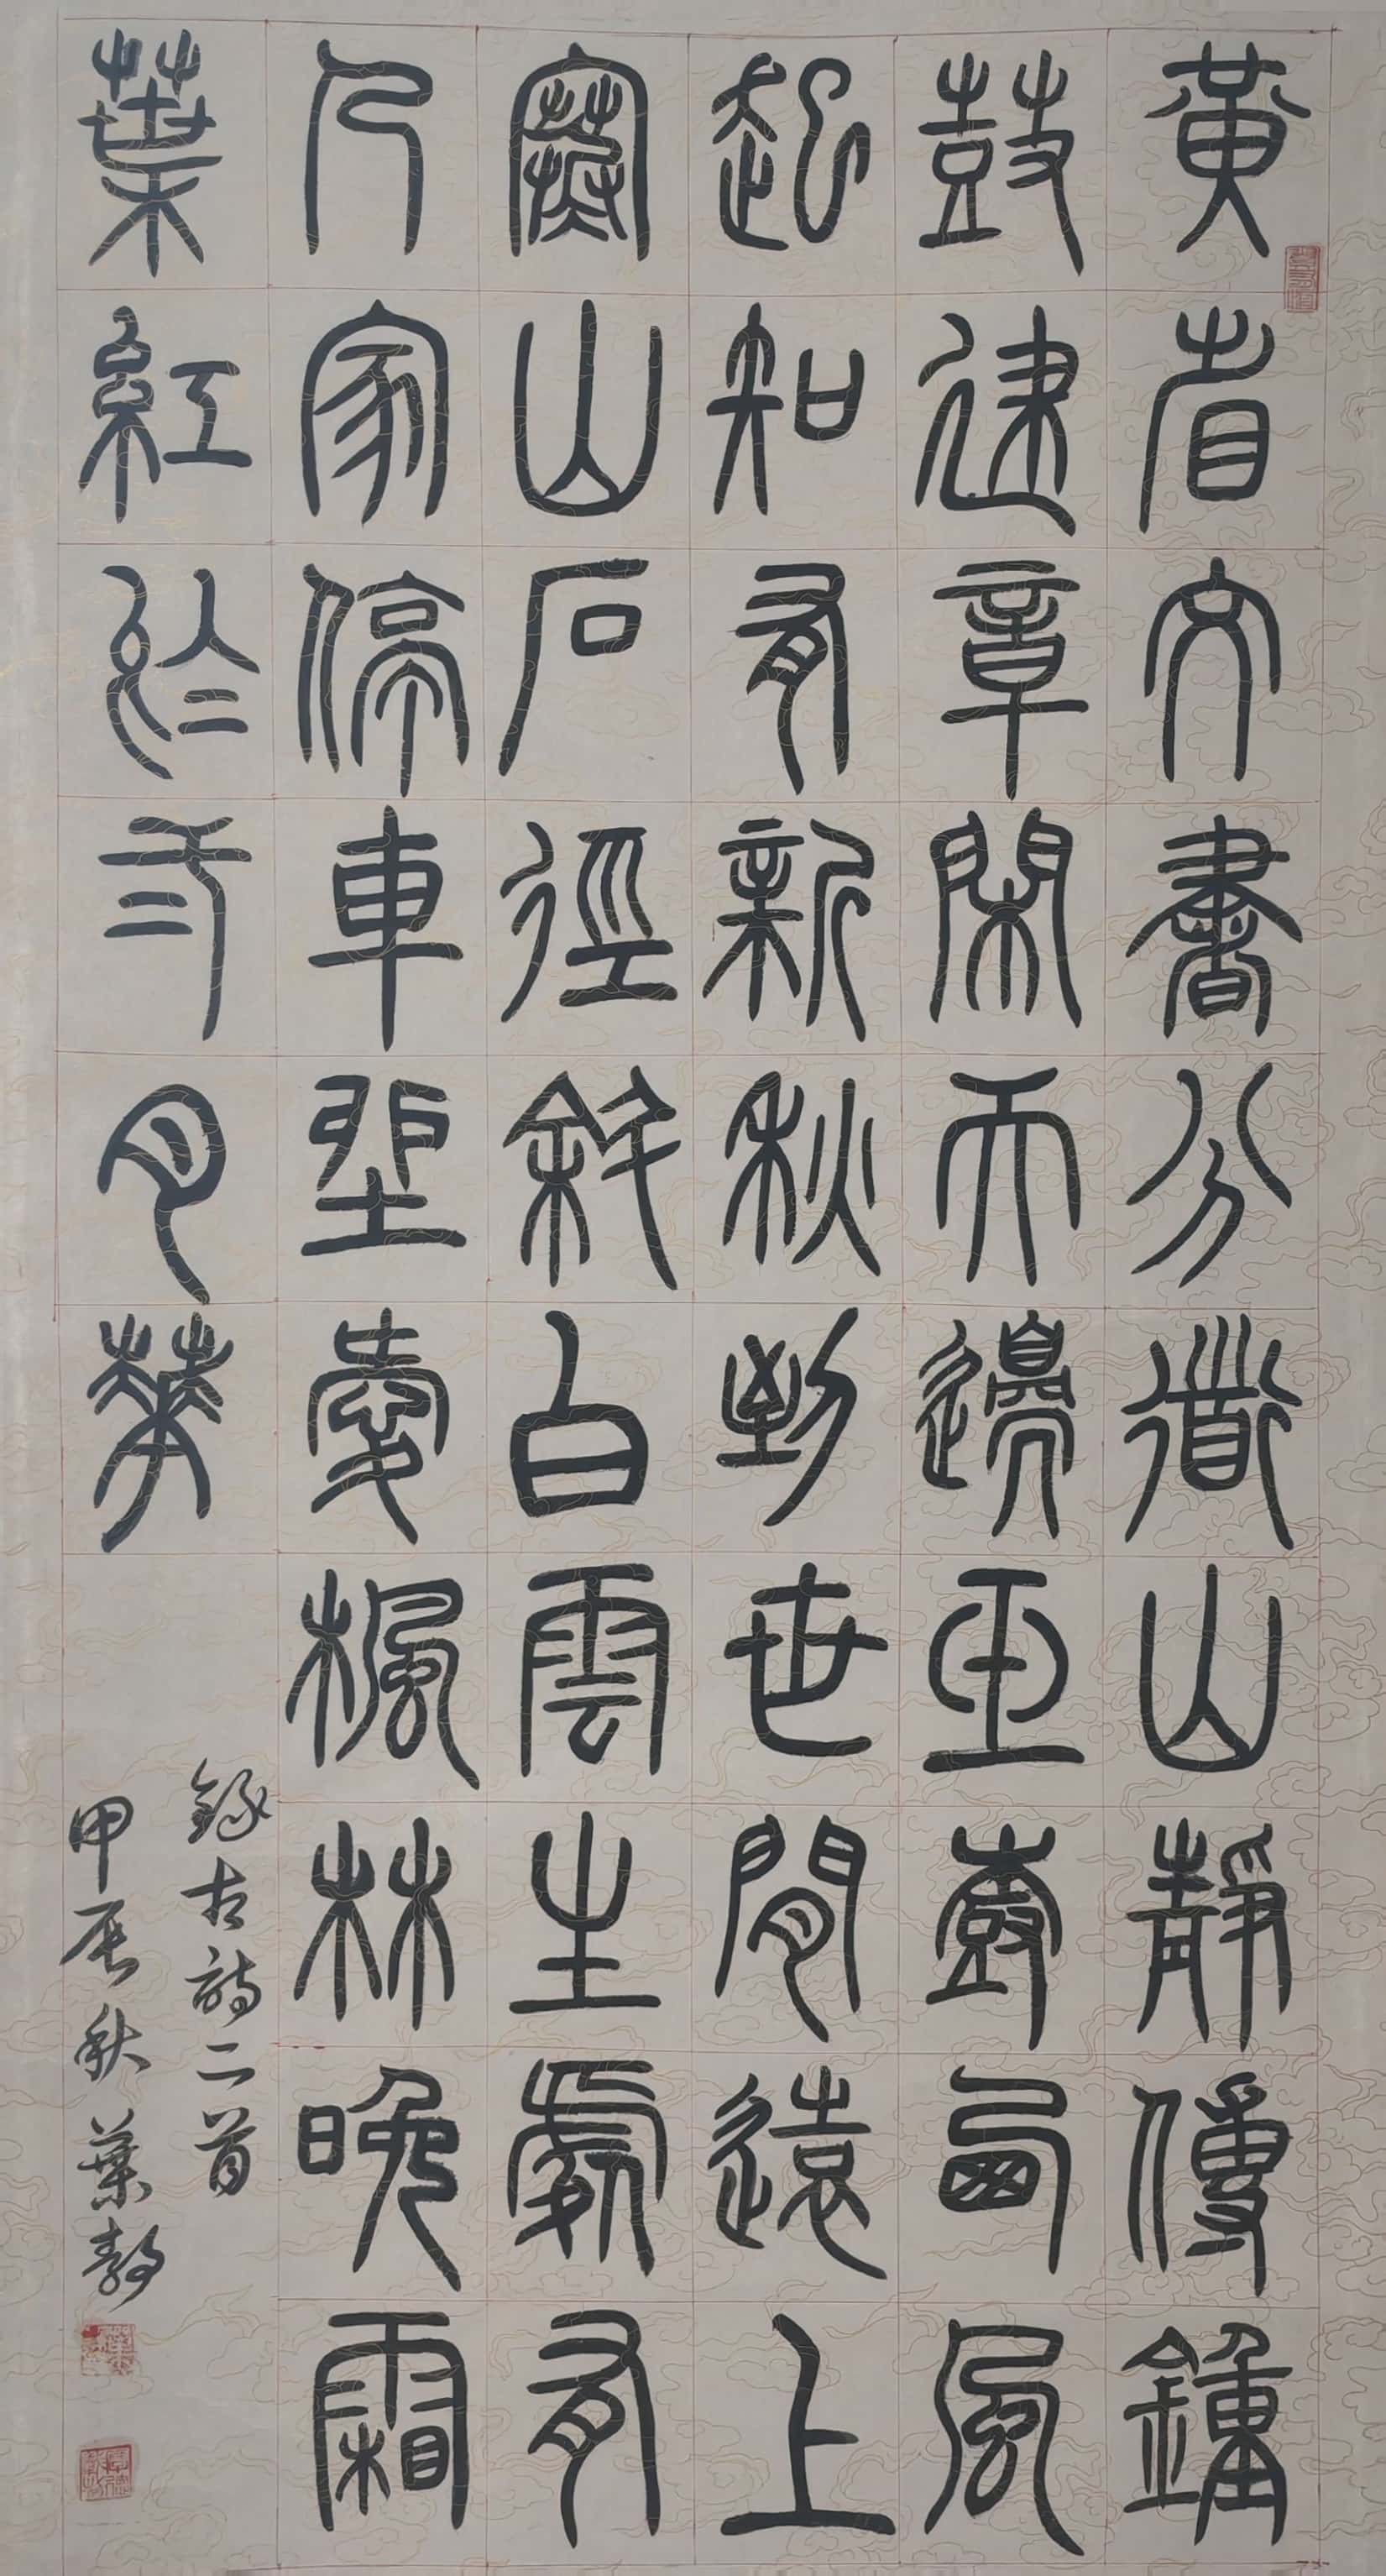 黃省文書分道山靜傳鐘
鼓建章閑天邊玉樹西風
起知有新秋到世間遠上
寒山石徑斜白雲生處有
人家停車坐愛楓林晚霜
葉紅於弍月華
錄古詩二首
甲辰秋葉